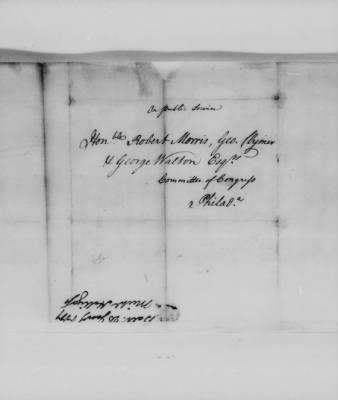 On public Service
Hon.ble Robert Morris, Geo. Clymer
& George Walton Esq.rs
Committee of Congress
Philad.a